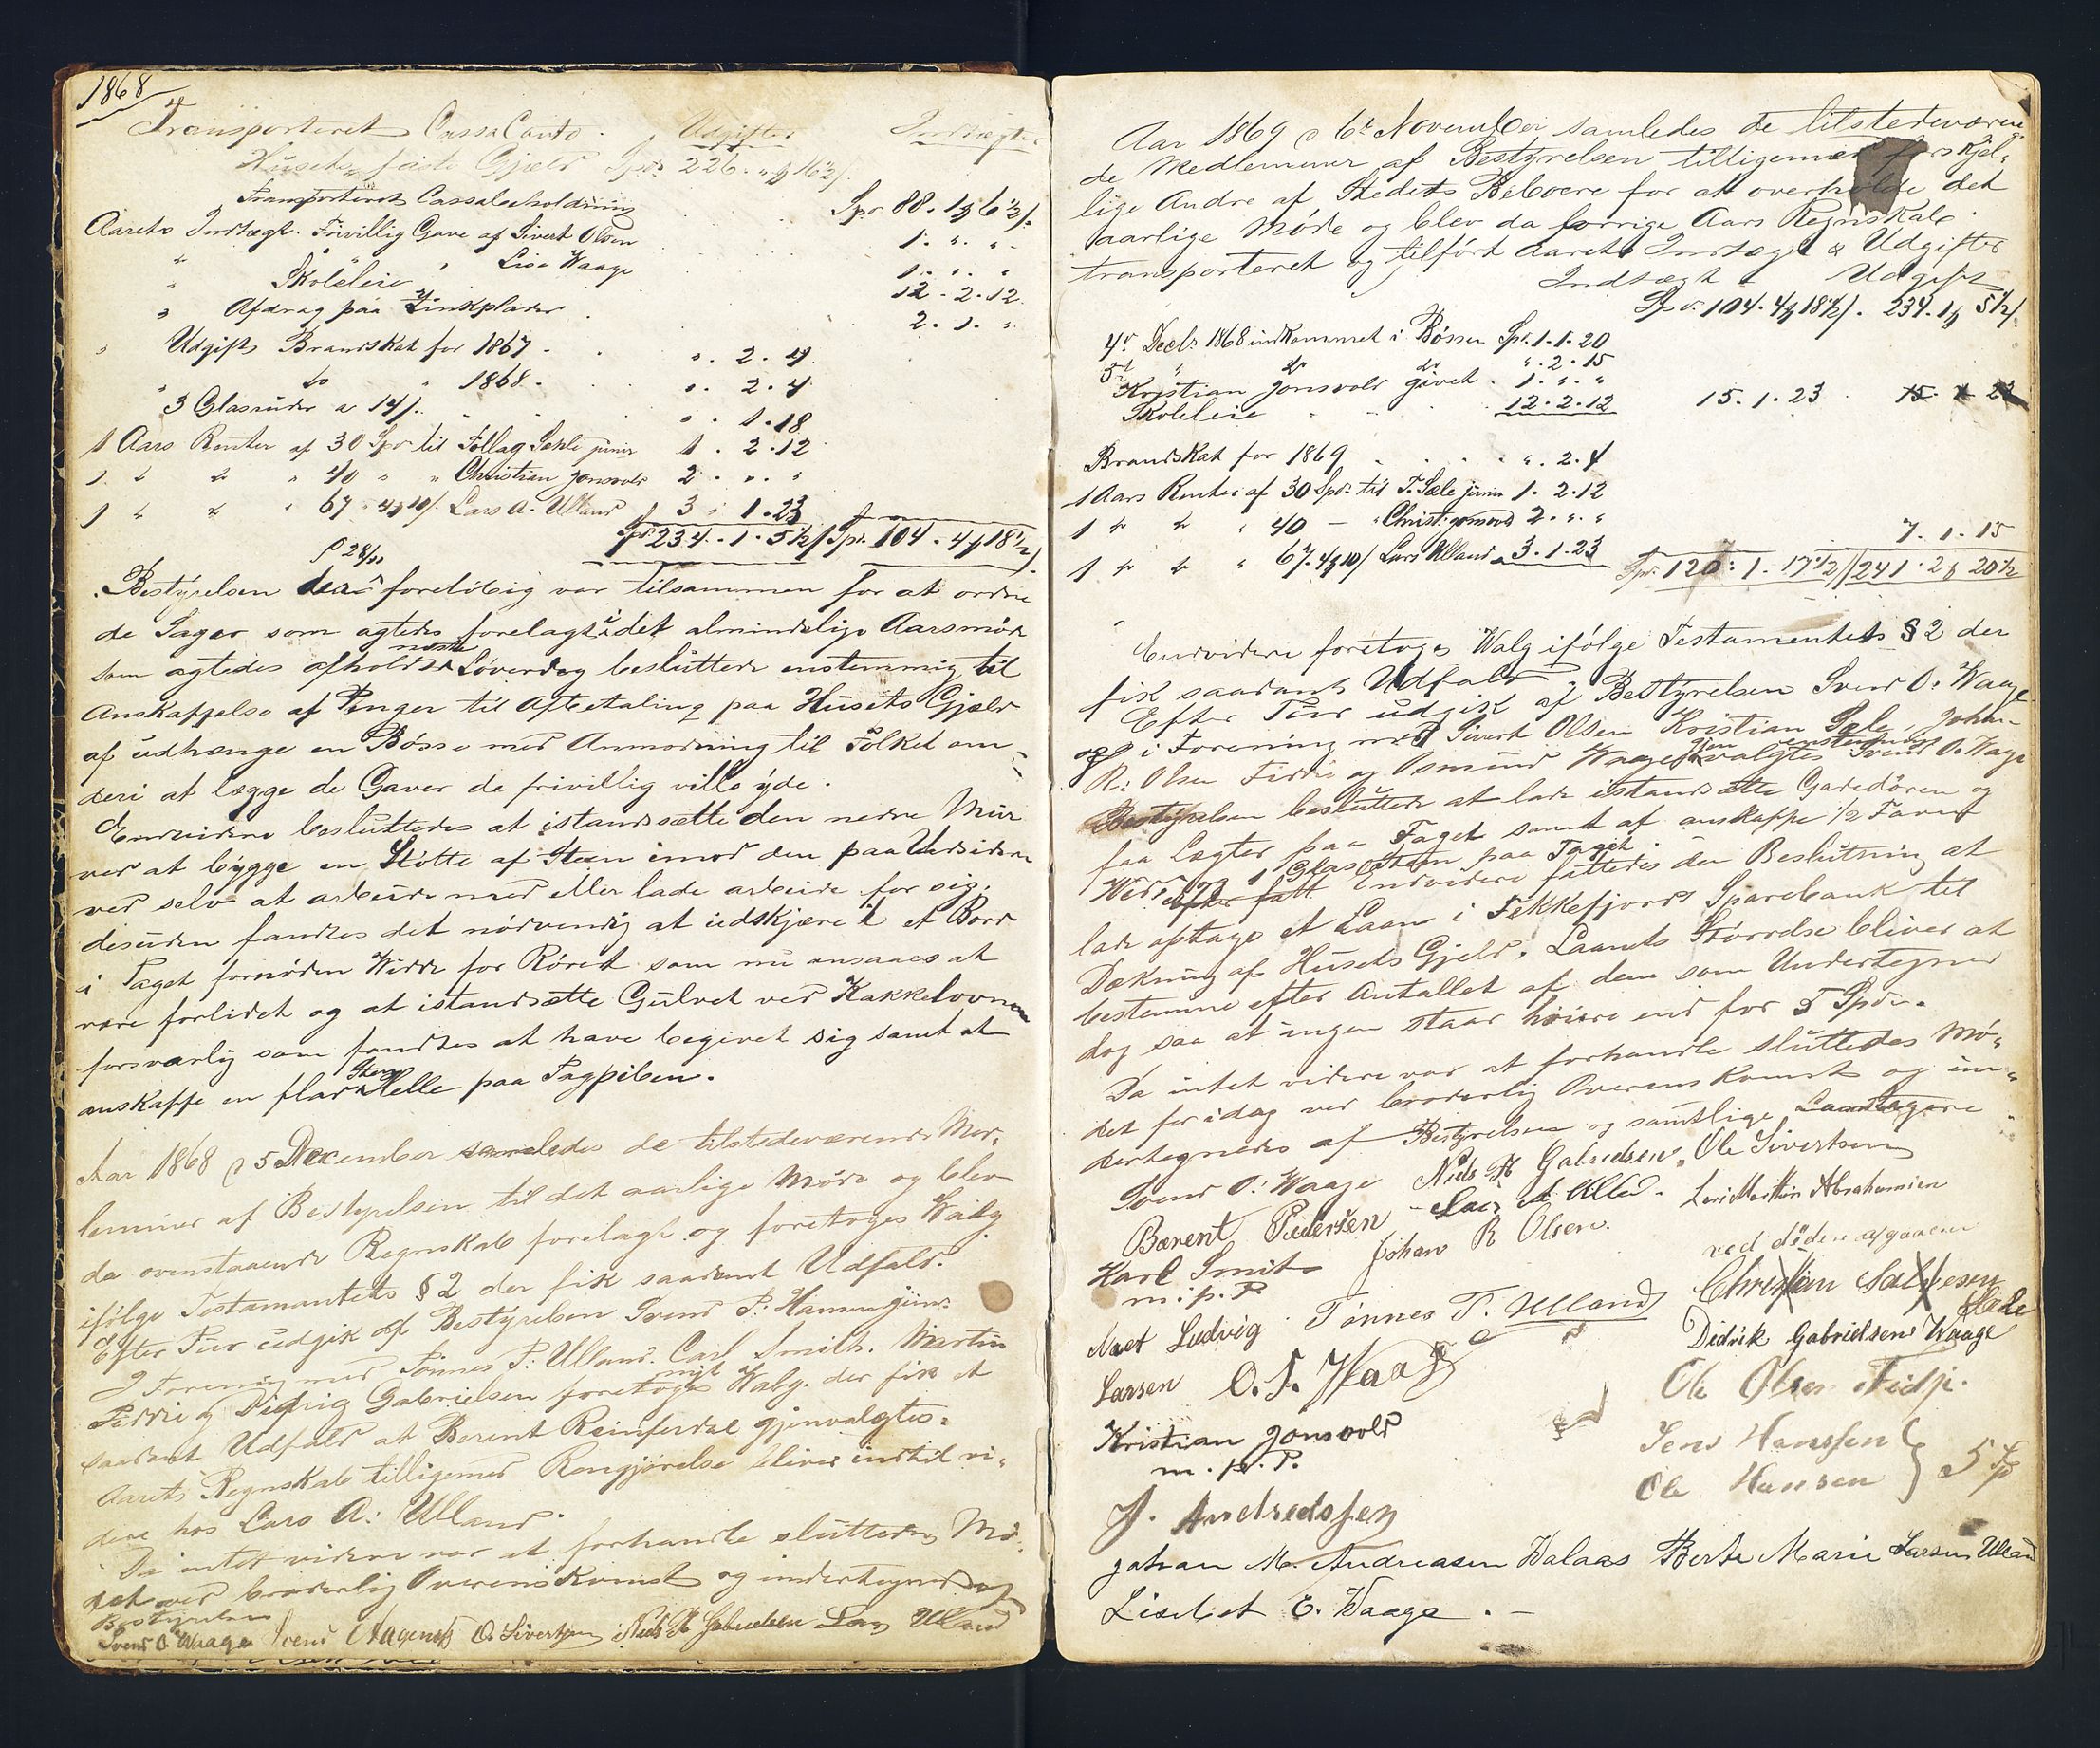 1868
Transporteret Cassa Conto. Udgifter Indtægter
Husets faste Gjæld Spd. 226. " ¤ 16½ /.
Transporteret Cassabeholdning Spd. 88. 1 ¤ 6½ /.
Aarets Indtægt. Frivillig Gave af Sivert Olsen 1. ". ".
" " Lisa Waage 1. ". "
" Skoleleie 12. 2. 12
" Afdrag paa Zinkplader 2. 1. "
" Udgift Brandskat for 1867. ". 2. 4
" do " 1868. ". 2. 4
3 Glasruder a 14 /. ". 1. 18
1 Aars Renter af 30 Spd til Tollag Sæle junir 1. 2. 12
1 " " " 40 " " Christian Jonsvold 2. ". "
1 " " " 67. 4 ¤ 10 /. Lars A. Ulland 3. 1. 23
Spd. 234. 1. 5½ /. Spd. 104. 4 ¤ 18½ /.
P 28/11
Bestyrelsen der foreløbig var tilsammen for at ordne
de Sager som agtedes forelagt i det almindelige Aarsmøde
som agtedes afholdt næste Løverdag besluttede enstemmig til
Anskaffelse af Penger til Afbetaling paa Husets Gjæld
af udhænge en Bøsse med Anmodning til Folket om
deri at lægge de Gaver de frivillig ville yde.
Endvidere besluttedes at istandsætte den nedre Mur
ved at bygge en Støtte af Steen imod den paa Udsiden
ved selv at arbeide med eller lade arbeide for sig.
desuden fandtes det nødvendig at udskjære i et Bord
i Taget fornøden Widde for Røret som nu ansaaes at
være forlidet og at istandsætte Gulvet ved Kakkelovnen
forsvarlig som fandtes at have begivet sig samt at
anskaffe en flad Steen Helle paa Tagpiben.
Aar 1868 d 5 December samledes de tilstedeværende Med-
lemmer af Bestyrelsen til det aarlige Møde og blev
da ovenstaaende Regnskab forelagt og foretoges Valg
ifølge Testamentets § 2 der fik saadant Udfald.
Efter Tur udgik af Bestyrelsen Svend P: Hansen Junr.
I Forening med Tønnes T: Ulland. Carl Smith. Martin
Fidde og Didrig Gabrielsen foretoges nyt Valg. der fik et
saadant Udfald at Berent Reinfordal gjenvalgtes.
Aarets Regnskab tilligemed Rengjørelse bliver indtil vi-
dere hos Lars A: Ulland.
Da intet videre var at forhandle sluttedes Mø-
det ved broderlig Overenskomst og undertegnedes af
Bestyrelsen
Svend O Waage Svend Aagensen O. Sivertsen Niels H Gabrielsen Lars Ulland
Aar 1869 d 6t November samledes de tilstedeværen-
de Medlemmer af Bestyrelsen tilligemed forskjel-
lige Andre af Stedets Beboere for at overholde det
aarlige Møde og blev da forrige Aars Regnskab
transporteret og tilført Aarets Indtægt & Udgifter
Indtægt Udgift
Spd. 104. 4 ¤ 18½ /. 234. 1 ¤ 5½ /.
4d Decb. 1868 indkommet i Bøssen Spd. 1. 1. 20
5d " do do ". 2. 15
Kristian Jonsvold givet. 1. ". "
Skoleleie 12. 2. 12 15. 1. 23
Brandskat for 1869 ". 2. 4
1 Aars Renter af 30 Spd. til T. Sæle junir 1. 2. 12
1 " " " 40 — " Christ. Jonsvold 2. ". "
1 " " " 67. 4 ¤ 10 /. Lars Ulland 3. 1. 23 7. 1. 15
Spd. 120. 1. 17½ /. 241. 2 ¤ 20½
Endvidere foretoges Walg ifølge Testamentets § 2 der
fik saadant Udfald
Efter Tur udgik af Bestyrelsen Svend O: Waage
og i Forening med Sivert Olsen Kristian Sæle Johan
R: Olsen Fidde og Osmund Waage gjenvalgtes enstemmig Svend O. Waage
Bestyrelsen besluttede at lade istandsætte Gadedøren og
faa Lægter paa Taget samt af anskaffe 1/2 Favn
Wed 1 Glassteen paa Taget.
Endvidere fattedes den Beslutning at
lade optage et Laan i Fækkefjords Sparebank til
Dækning af Husets Gjeld. Laanets Størrelse bliver at
bestemme efter Antallet af dem som Undertegner
dog saa at ingen staar høiere end for 5 Spdr.
Da intet videre var at forhandle sluttedes Mø-
det for idag ved broderlig Overenskomst og un-
dertegnedes af Bestyrelsen og samtlige Laantagere
Svend O: Waage Niels H Gabrielsen. Ole Sivertsen
Bærent Pedersen Lars A Ulland. Lars Martin Abrahamsen
Karl Smit Johan R Olsen. ved døden afgaaen
m. p. P
Tønnes T. Ulland Christian Salvesen Sæle
Ludvig Didrik Gabrielsen Waage
Larsen O. S. Waage Ole Olsen Fidje.
Kristian Jonsvold Jens Hanssen
m. p. P. Ole Hansen } 5 Sp
J. Andreassen
Johan M. Andreasen Walaas Berte Marie Larsen Ulland
Lisebet E. Waage. —